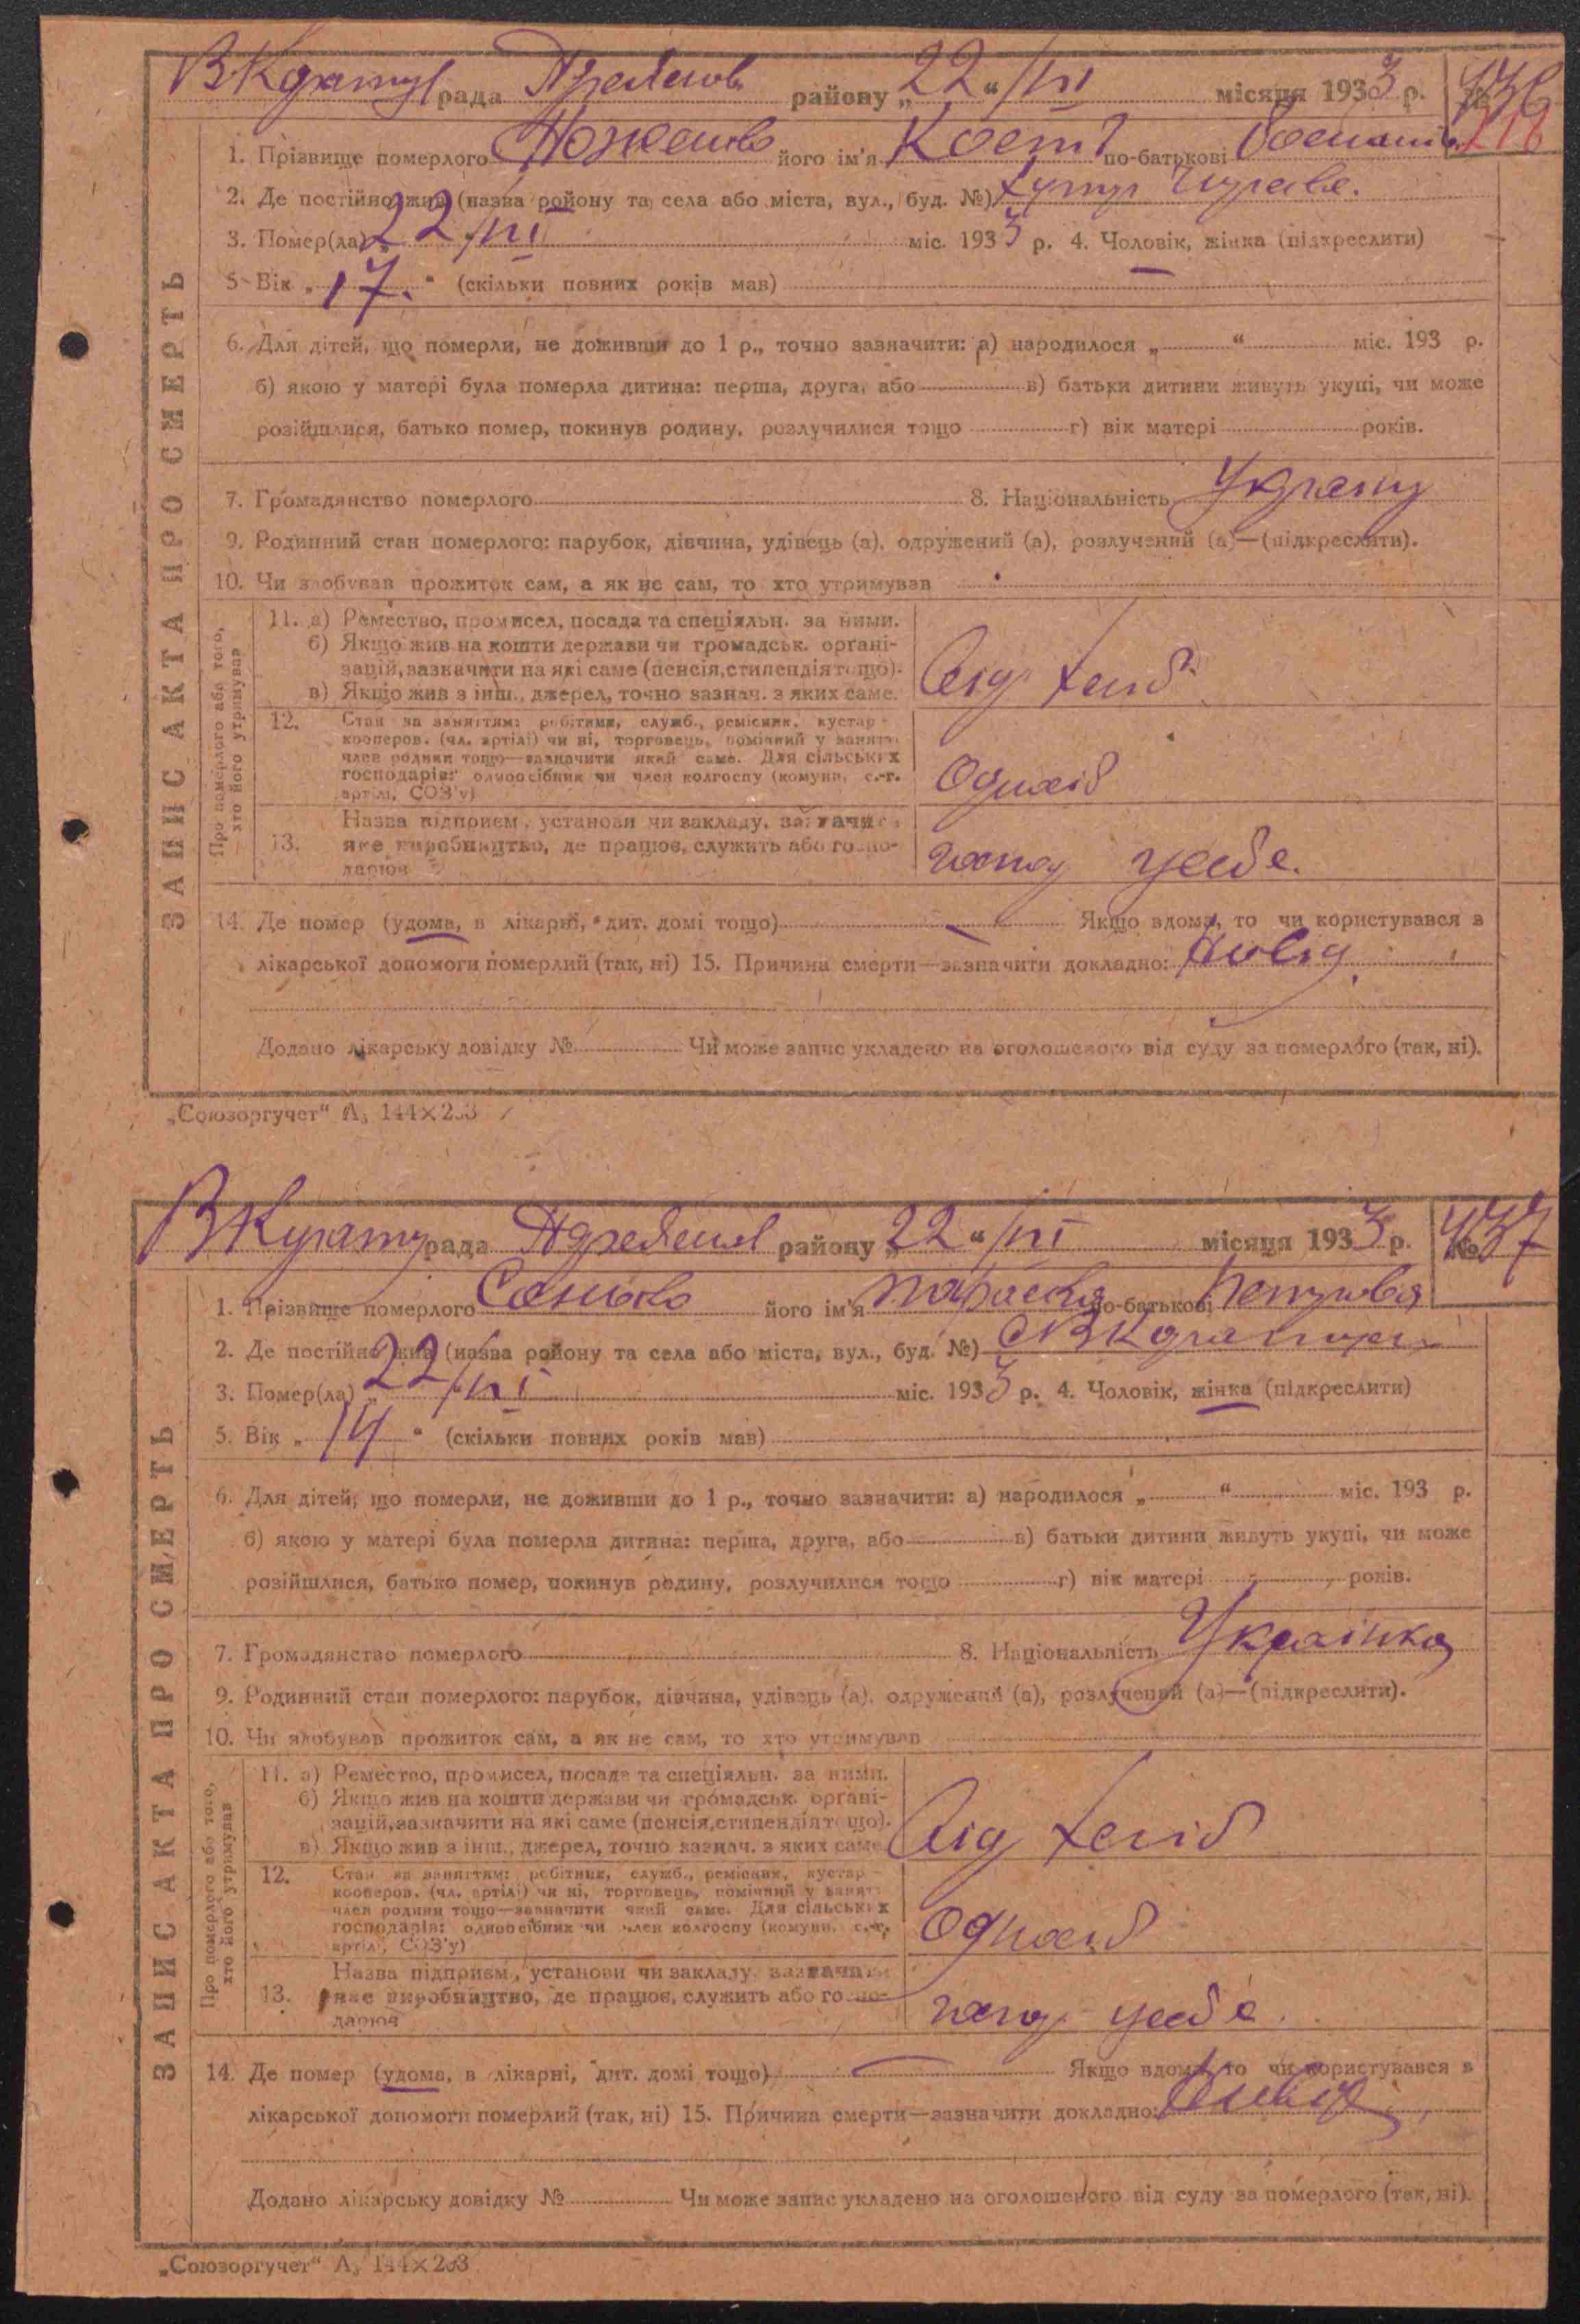 рада району „22“ /III місяця 1933 р. № 436
218
1. Прізвище померлого його ім'я Кость по-батькові
2. Де постійно жив (назва ройону та села або міста, вул., буд. №) хутур
3. Помер(ла) „22“ /III міс. 1933 р. 4. Чоловік, жінка (підкреслити)
5. Вік „17.“ (скільки повних років мав)
6. Для дітей, що померли, не доживши до 1 р., точно зазначити: а) народилося „ “ міс. 193 р.
б) якою у матері була померла дитина: перша, друга, або в) батьки дитини живуть укупі, чи може
розійшлися, батько помер, покинув родину, розлучилися тощо г) вік матері років.
7. Громадянство померлого 8. Національність
9. Родинний стан померлого: парубок, дівчина, удівець (а), одружений (а), розлучений (а)—(підкреслити).
10. Чи здобував прожиток сам, а як не сам, то хто утримував
ЗАПИС АКТА ПРО СМЕРТЬ
Про померлого або того,
хто його утримував
11. а) Ремество, промисел, посада та спеціяльн. за ними.
б) Якщо жив на кошти держави чи громадськ. орґані-
зацій, зазначити на які саме (пенсія, стипендія тощо).
в) Якщо жив з інш., джерел, точно зазнач. з яких саме.
12. Стан за заняттям: робітник, служб., ремісник, кустар-
кооперов. (чл. артілі) чи ні, торговець, помічний у занятт.
член родини тощо—зазначити який саме. Для сільських
господарів: одноосібник чи член колгоспу (комуни, с.-г.
артілі, СОЗ'у)
13. Назва підприєм., установи чи закладу, зазначити
яке виробництво, де працює, служить або госпо-
дарює
14. Де помер (удома, в лікарні, дит. домі тощо) Якщо вдома, то чи користувався з
лікарської допомоги померлий (так, ні) 15. Причина смерти—зазначити докладно:
Додано лікарську довідку № Чи може запис укладено на оголошеного від суду за померлого (так, ні).
„Союзоргучет“ А₅ 144×203
рада району „22“ /III місяця 1933 р. № 437
1. Прізвище померлого його ім'я Параскя по-батькові Петровья
2. Де постійно жив (назва ройону та села або міста, вул., буд. №)
3. Помер(ла) „22“ /III міс. 1933 р. 4. Чоловік, жінка (підкреслити)
5. Вік „14“ (скільки повних років мав)
6. Для дітей, що померли, не доживши до 1 р., точно зазначити: а) народилося „ “ міс. 193 р.
б) якою у матері була померла дитина: перша, друга, або в) батьки дитини живуть укупі, чи може
розійшлися, батько помер, покинув родину, розлучилися тощо г) вік матері років.
7. Громадянство померлого 8. Національність Українка
9. Родинний стан померлого: парубок, дівчина, удівець (а), одружений (а), розлучений (а)—(підкреслити).
10. Чи здобував прожиток сам, а як не сам, то хто утримував
ЗАПИС АКТА ПРО СМЕРТЬ
Про померлого або того,
хто його утримував
11. а) Ремество, промисел, посада та спеціяльн. за ними.
б) Якщо жив на кошти держави чи громадськ. орґані-
зацій, зазначити на які саме (пенсія, стипендія тощо).
в) Якщо жив з інш., джерел, точно зазнач. з яких саме
12. Стан за заняттям: робітник, служб., ремісник, кустар-
кооперов. (чл. артілі) чи ні, торговець, помічний у занятт.
член родини тощо—зазначити який саме. Для сільських
господарів: одноосібник чи член колгоспу (комуни, с.-г.
артілі, СОЗ'у)
13. Назва підприєм., установи чи закладу, зазначити
яке виробництво, де працює, служить або госпо-
дарює
14. Де помер (удома, в лікарні, дит. домі тощо) Якщо вдома, то чи користувався з
лікарської допомоги померлий (так, ні) 15. Причина смерти—зазначити докладно:
Додано лікарську довідку № Чи може запис укладено на оголошеного від суду за померлого (так, ні).
„Союзоргучет“ А₅ 144×203